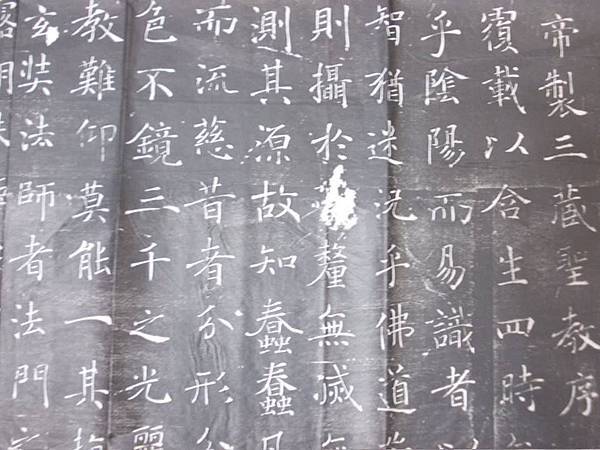 帝製三藏聖教序
覆載以含生四時
乎陰陽而易識者以
智猶迷況乎佛道
則攝於釐無滅無
測其源故知蠢蠢凡
而流慈昔者分形分
色不鏡三千之光麗
教難仰莫能一其
玄奘法師者法門